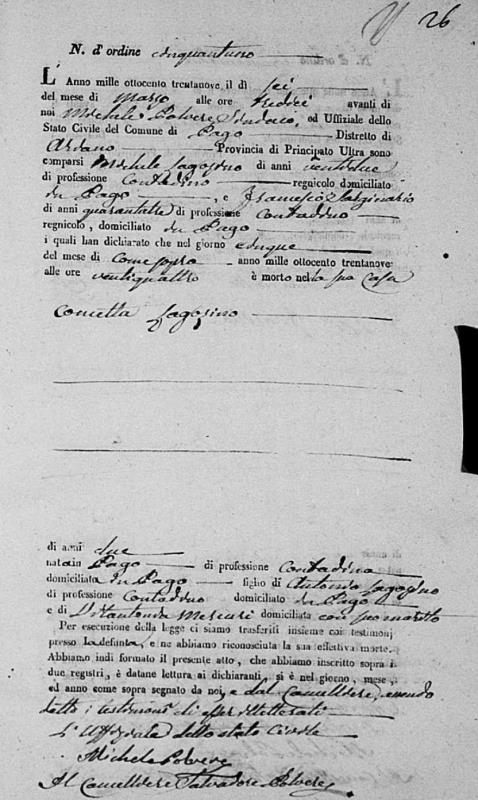 26
N. d'ordine cinquantuno
L'Anno mille ottocento trentanove, il dì sei
del mese di Marzo alle ore tredici avanti di
noi Michele Polvere Sindaco, ed Uffiziale dello
Stato Civile del Comune di Pago Distretto di
Ariano Provincia di Principato Ultra sono
comparsi Michele Iagosino di anni ventidue
di professione Contadino regnicolo domiciliato
in Pago, e Francesco
di anni quarantatre di professione Contadino
regnicolo, domiciliato in Pago
i quali han dichiarato che nel giorno cinque
del mese di Come sopra anno mille ottocento trentanove
alle ore ventiquattro è morto nella sua Casa
Cometta Iagosino
di anni due
nata in Pago di professione Contadina
domiciliata in Pago figlio di Antonio Iagosino
di professione Contadino domiciliato in Pago
e di Mercuri domiciliata con suo marito
Per esecuzione della legge ci siamo trasferiti insieme coi testimonj
presso la defunta, e ne abbiamo riconosciuta la sua effettiva morte.
Abbiamo indi formato il presente atto, che abbiamo inscritto sopra i
due registri, è datane lettura ai dichiaranti, si è nel giorno, mese,
ed anno come sopra segnato da noi, e dal Cancelliere, avendo
detto i testimoni di esser illetterati
L'Uffiziale dello stato Civile
Michele Polvere
Il Cancelliere Salvatore Polvere